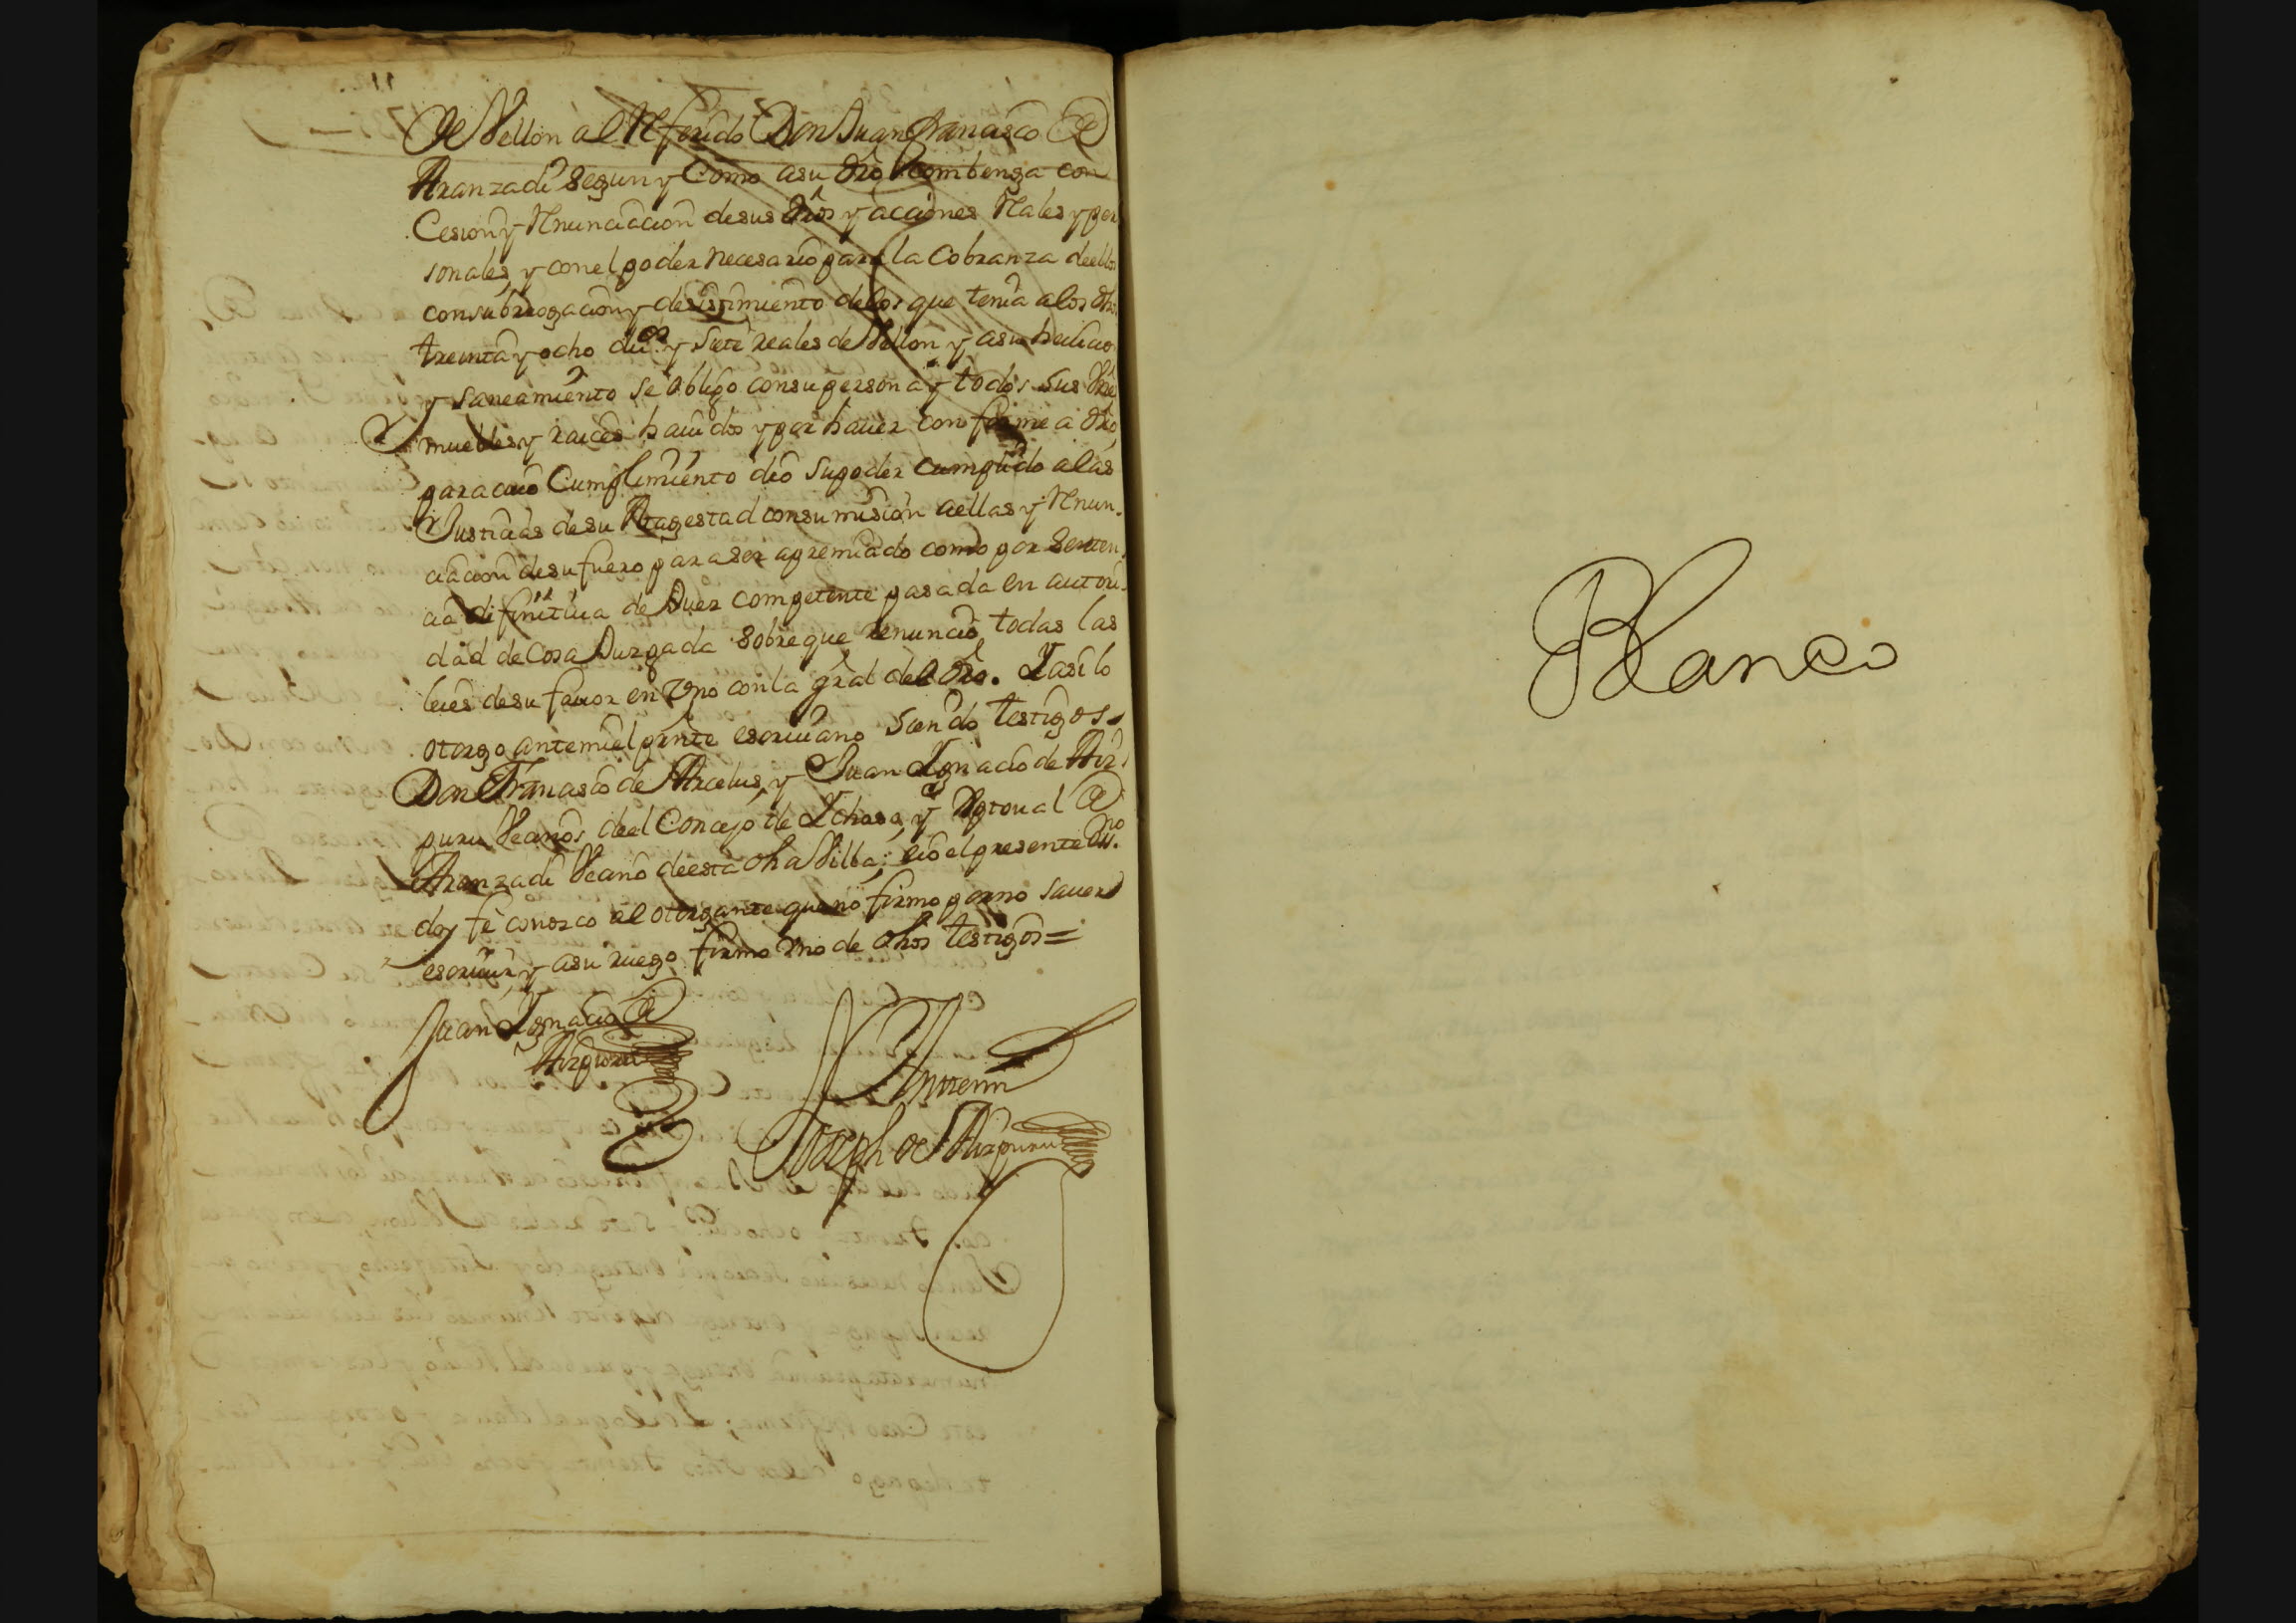 de Vellon àl Referido Don Juan Francisco de
Aranzadi segun y Como asu dro combenga con
Cesion y Renunciacion desus dros y acciones Reales y per
sonales, y con el poder necesario para la Cobranza deellos
consubrrogacion y desistimiento delos que tenia alos dhos
treinta y ocho du.os y siete reales de Vellon y asu
y saneamiento se obligo consu persona y todos sus
muebles y raices hauidos y por hauer conforme a dro,
para cuio Cumplimiento dio supoder cumplido alas
Justicias desu Magestad consumision aellas y Renun-
ciacion desu fuero para ser apremiado como por senten-
cia difinitiua de Juez competente pasada en autori-
dad de Cosa Juzgada sobreque renuncio todas las
leies desu fauor en vno conla gral del dro. Y asi lo
otorgo antemi el prnte escriuano siendo testigos
Don Francisco de Arcelus, y Juan Ignacio de Aiz-
puru Vecinos deel Concejo de Ichaso, y de
Aranzadi Vecino deesta dha Villa; eio el presente Su.no
doy fe conozco al otorgante que no firmo por no sauer
escriuir, y asu ruego firmo vno de dhos testigos=
Juan Ignacio de
Aizpuru
Antemi
Joseph de Aizpuru
Blanco